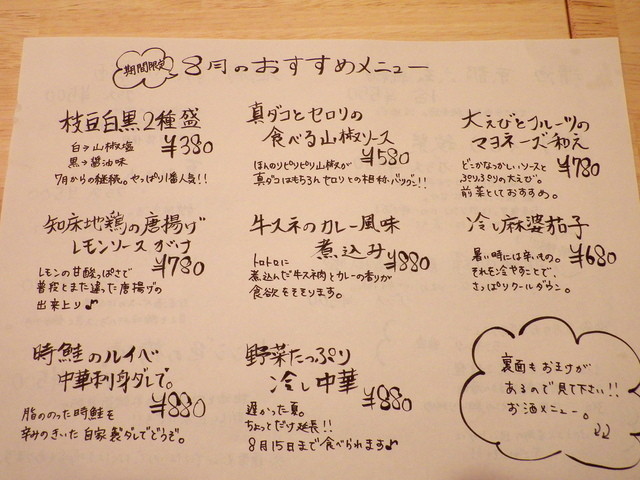 期間限定
8月のおすすめメニュー
枝豆白黒2種盛
白→山椒塩
黒→醤油味
¥380
7月からの継続。やっぱり1番人気!!
真ダコとセロリの
食べる山椒ソース
¥580
ほんのりピリピリ山椒が
真ダコはもちろんセロリとの相材バツグン!!
大えびとフルーツの
マヨネーズ和え
¥780
どこかなつかしいソースと
ぷりぷりの大えび。
前菜としておすすめ。
知床地鶏の唐揚げ
レモンソースがけ
¥780
レモンの甘酸っぱさで
普段とまた違った唐揚げの
出来上り♪
牛スネのカレー風味
煮込み
¥880
トロトロに
煮込んだ牛スネ肉とカレーの香りが
食欲をそそります。
冷し麻婆茄子
¥680
暑い時には辛いもの。
それを冷やすことで、
さっぱりクールダウン。
時鮭のルイベ
中華刺身ダレで。
¥880
脂ののった時鮭を
辛みのきいた自家製ダレでどうぞ。
野菜たっぷり
冷し中華
¥880
遅かった夏。
ちょっとだけ延長!!
8月15日まで食べられます♪
裏面もお王けが
あるので見て下さい!!
お酒メニュー。